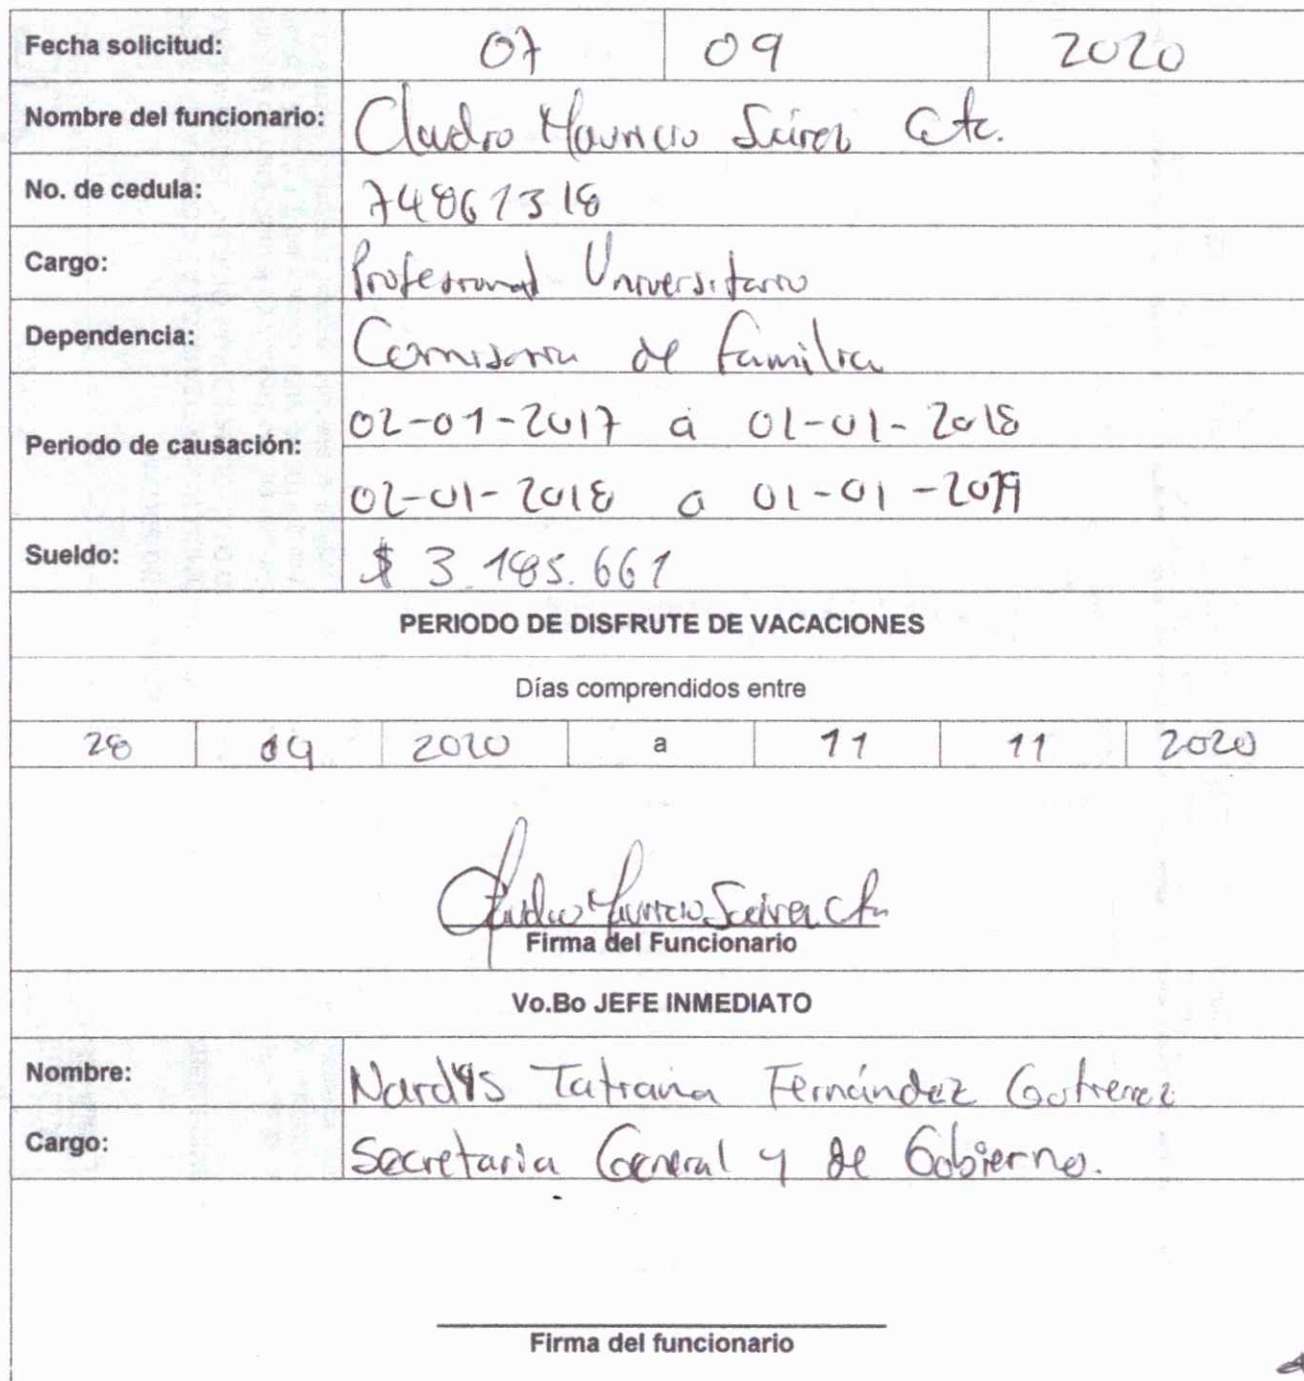 Fecha solicitud: 07 09 2020
Nombre del funcionario: Claudio Mauricio
No. de cedula: 74861318
Cargo: Profesional Universitario
Dependencia: Comisaria de familia
Periodo de causación:
02-01-2017 a 01-01-2018
02-01-2018 a 01-01-2019
Sueldo: $ 3.185.661
PERIODO DE DISFRUTE DE VACACIONES
Días comprendidos entre
28 09 2020 a 11 11 2020
Claudio Mauricio
Firma del Funcionario
Vo.Bo JEFE INMEDIATO
Nombre: Nardys Tatiana Fernández Gutierrez
Cargo: Secretaria General y de Gobierno.
Firma del funcionario